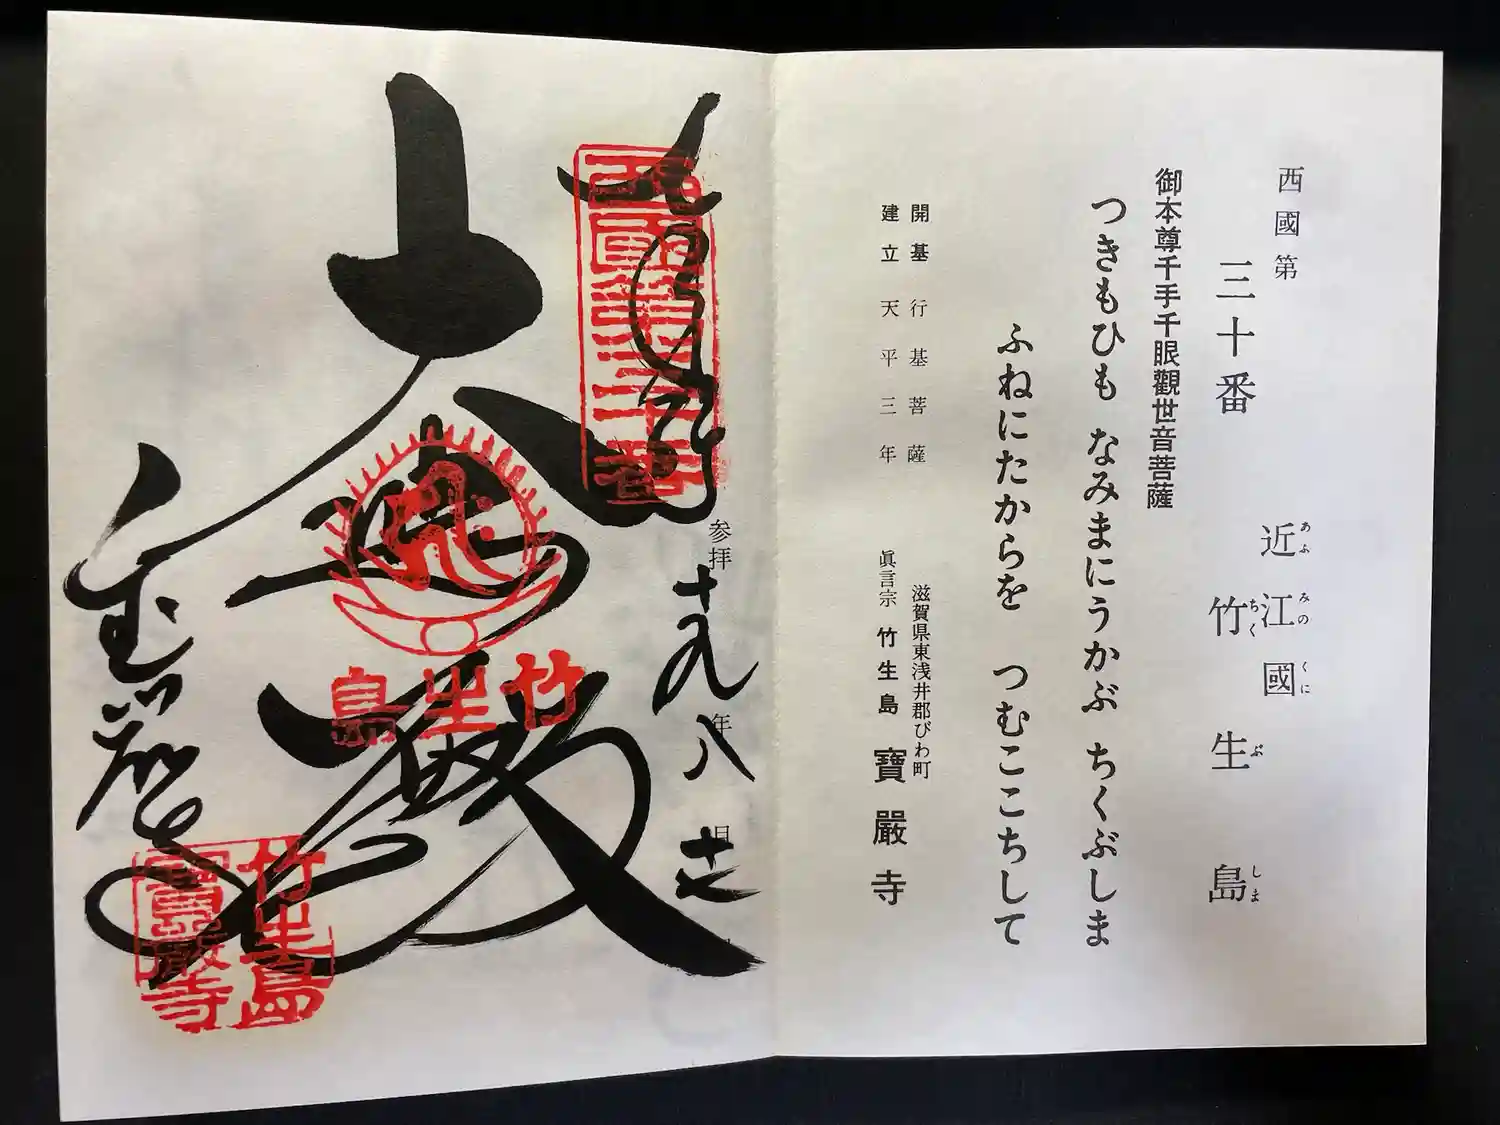 西國第
三十番
近江國
あふみのくに
竹生島
ちくぶしま
御本尊千手千眼觀世音菩薩
つきもひも なみまにうかぶ ちくぶしま
ふねにたからを つむここちして
開基 行基菩薩
建立 天平三年
滋賀県東浅井郡びわ町
眞言宗 竹生島 寶嚴寺
参拝
十九年八月十七日
西國第三十番
大悲殿
竹生島
宝厳寺
竹生島
寶嚴寺